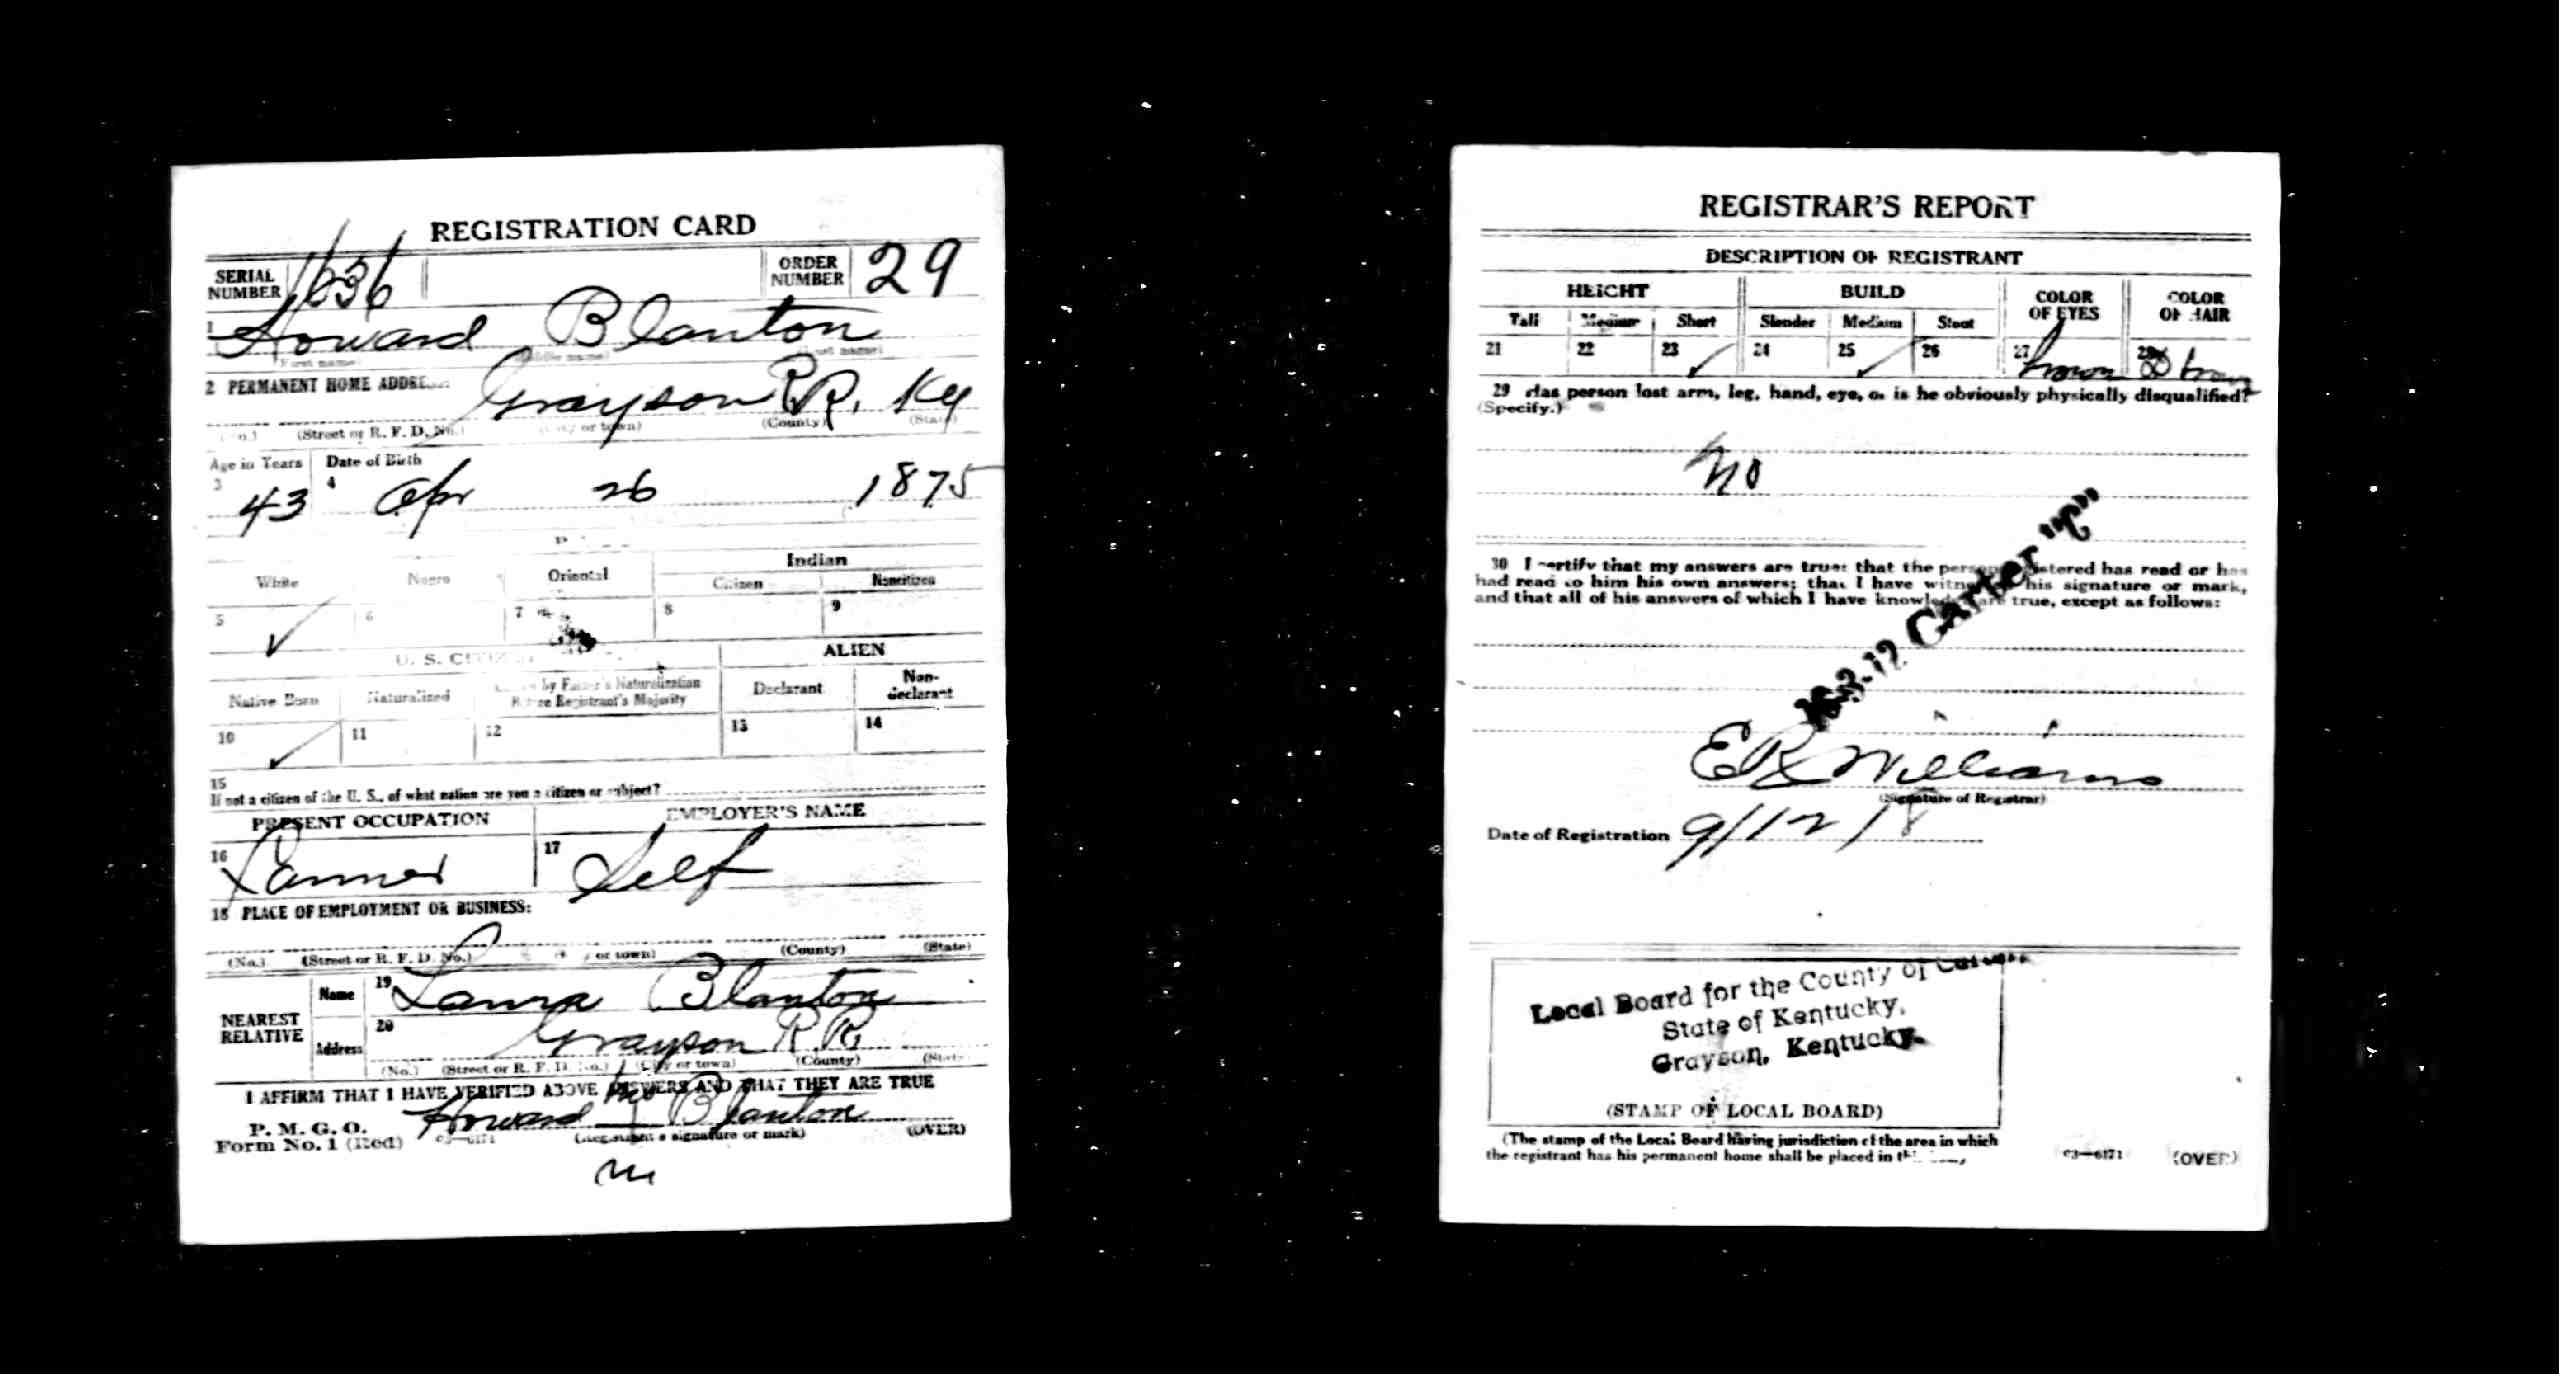 REGISTRATION CARD
SERIAL NUMBER 1636 ORDER NUMBER 29
1 Howard Blanton
(First name) (Middle name) (Last name)
2 PERMANENT HOME ADDRESS:
Grayson R.R. Ky
(No.) (Street or R. F. D. No.) (City or town) (County) (State)
Age in Years Date of Birth
3 43 4 Apr 26 1875
Indian
White Negro Oriental Citizen Noncitizen
5 ✓ 6 7 8 9
U. S. CITIZEN ALIEN
Native Born Naturalized by Father's Naturalization Before Registrant's Majority Declarant Non-declarant
10 ✓ 11 12 13 14
15
If not a citizen of the U. S., of what nation are you a citizen or subject?
PRESENT OCCUPATION EMPLOYER'S NAME
16 Farmer 17 Self
18 PLACE OF EMPLOYMENT OR BUSINESS:
(No.) (Street or R. F. D. No.) (City or town) (County) (State)
NEAREST RELATIVE
Name 19 Laura Blanton
Address 20 Grayson R.R.
(No.) (Street or R. F. D. No.) (City or town) (County) (State)
I AFFIRM THAT I HAVE VERIFIED ABOVE ANSWERS AND THAT THEY ARE TRUE
P. M. G. O.
Form No. 1 (Red) Howard Blanton
(Registrant's signature or mark) (OVER)
REGISTRAR'S REPORT
DESCRIPTION OF REGISTRANT
HEIGHT BUILD COLOR OF EYES COLOR OF HAIR
Tall Medium Short Slender Medium Stout
21 22 23 ✓ 24 25 ✓ 26 27 brown 28 brown
29 Has person lost arm, leg, hand, eye, or is he obviously physically disqualified?
(Specify.)
no
30 I certify that my answers are true; that the person registered has read or has
had read to him his own answers; that I have witnessed his signature or mark,
and that all of his answers of which I have knowledge are true, except as follows:
Carter "C"
E R Williams
(Signature of Registrar)
Date of Registration 9/12/18
Local Board for the County of Carter
State of Kentucky,
Grayson, Kentucky.
(STAMP OF LOCAL BOARD)
(The stamp of the Local Board having jurisdiction of the area in which
the registrant has his permanent home shall be placed in this
03—6171 (OVER)